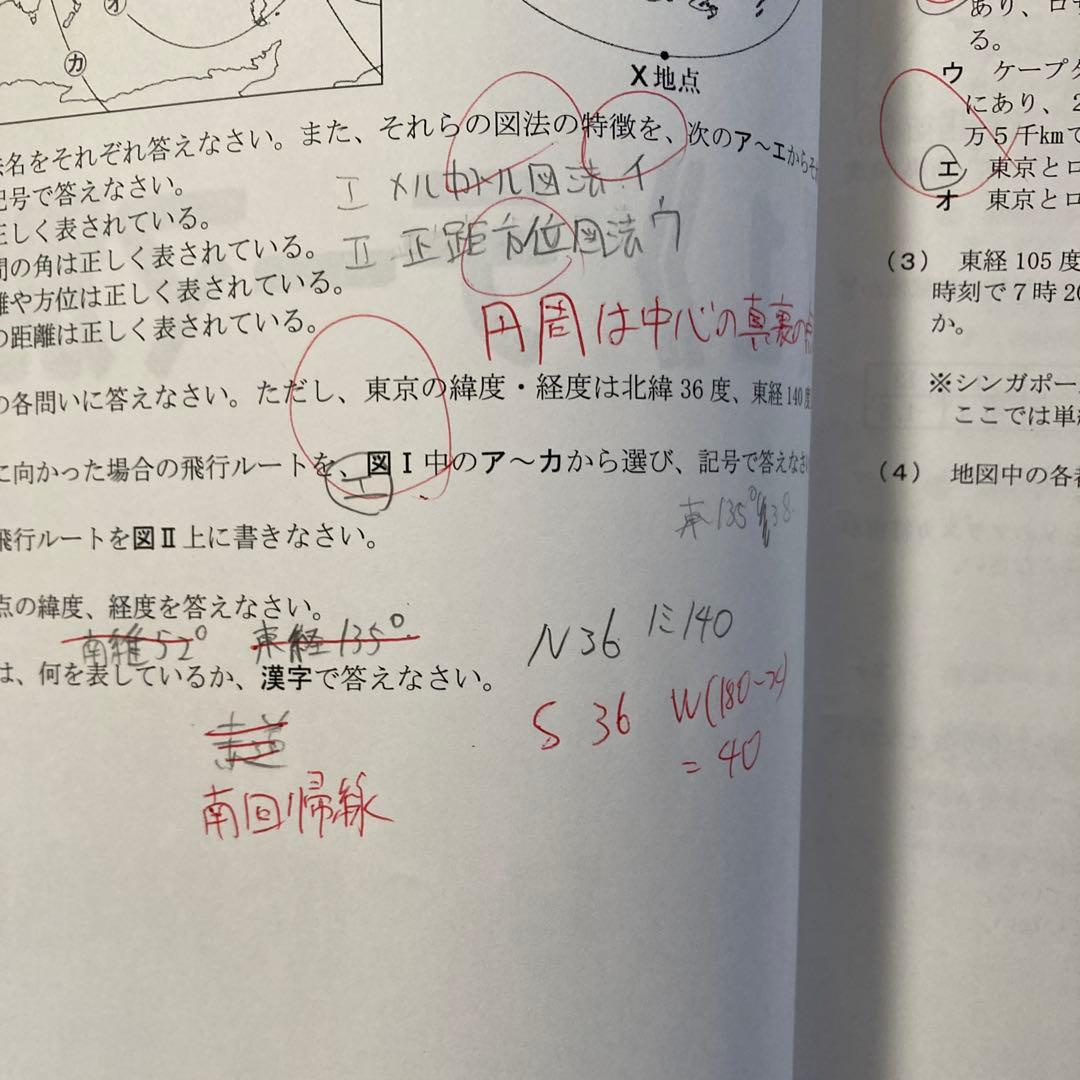 オ
カ
X地点
名をそれぞれ答えなさい。また、それらの図法の特徴を、次のア～エから
記号で答えなさい。
正しく表されている。
間の角は正しく表されている。
離や方位は正しく表されている。
の距離は正しく表されている。
I メルカトル図法 イ
II 正距方位図法 ウ
円周は中心の真裏の
の各問いに答えなさい。ただし、東京の緯度・経度は北緯36度、東経140度
に向かった場合の飛行ルートを、図Ⅰ中のア～カから選び、記号で答えなさ
エ
東135°
飛行ルートを図Ⅱ上に書きなさい。
点の緯度、経度を答えなさい。
南緯52° 東経135°
は、何を表しているか、漢字で答えなさい。
赤道
南回帰線
N36 E140
S 36 W(180-
=40
あり、ロ
る。
ウ ケープタ
にあり、2
万5千kmで
エ 東京とロ
オ 東京とロ
(3) 東経105度
時刻で7時20
か。
※シンガポー
ここでは単
(4) 地図中の各